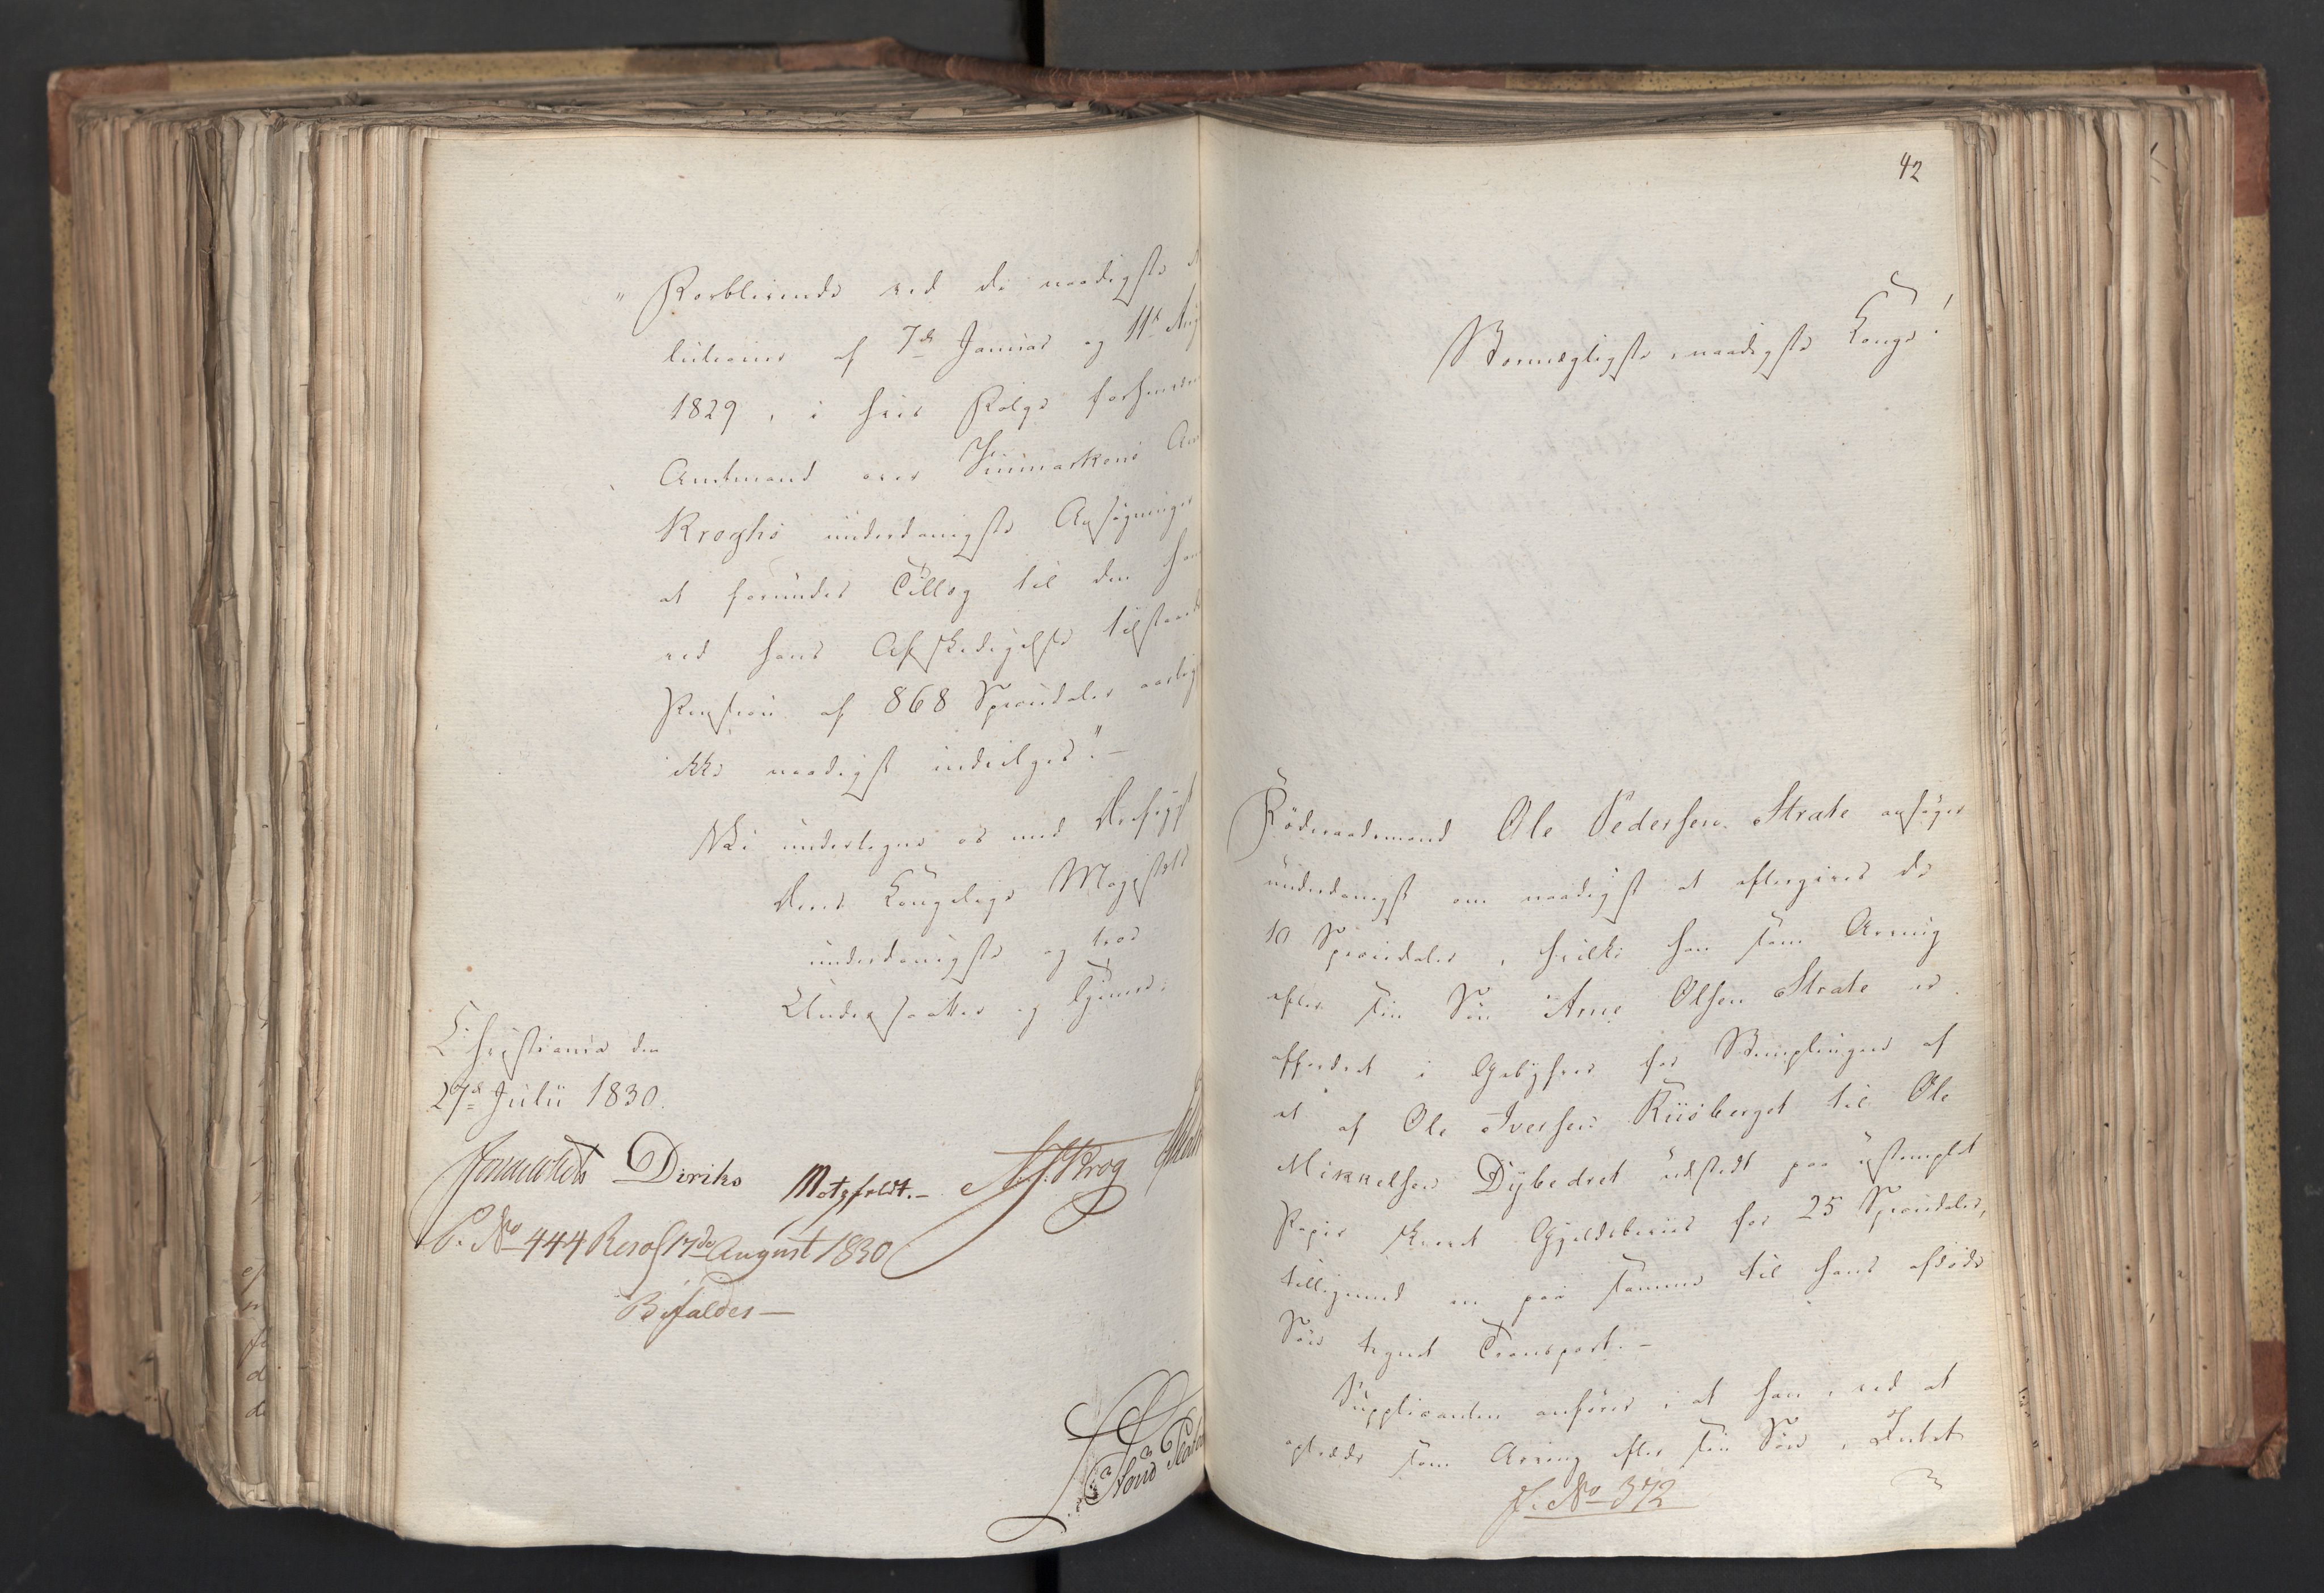 "Forblivende ved de naadigste
lutioner af 7de Januar og 11te Aug
1829, i hvis Følge forhenvæ
Amtmand over Finmarkens Am
Kroghs underdanigste Ansøgninger
at forundes Tillæg til den ha
ved hans Afskedigelse tilstaaede
Pension af 868 Speciedaler aarlig
ikke naadigst indvilges". -
Vi undertegne os med Dybeste
Deres Kongelige Majestæts
underdanigste og troe
Undersaatter og Tjenere.
Christiania den
27de Julii 1830.
Diriks Motzfeldt.- Krog
P. No 444 Res af 17de August 1830
Bifaldes -
42
Stormægtigste, naadigste Konge!
Ole Pedersen Strate ansøger
underdanigst om naadigst at eftergives de
10 Speciedaler, hvilke han som Arving
efter sin Søn Arne Olsen Strate er
affordret i Gebyhr for Stemplingen af
et af Ole Iversen Riisberget til Ole
Mikkelsen Dybedret udstedt paa ustemplet
Papir skrevet Gjeldsbeviis for 25 Speciedaler,
tilligemed en paa samme til hans afdøde
Søn tegnet Transport. -
Supplicanten anfører, at han, ved at
optræde som Arving efter sin Søn, Intet
J. No 372